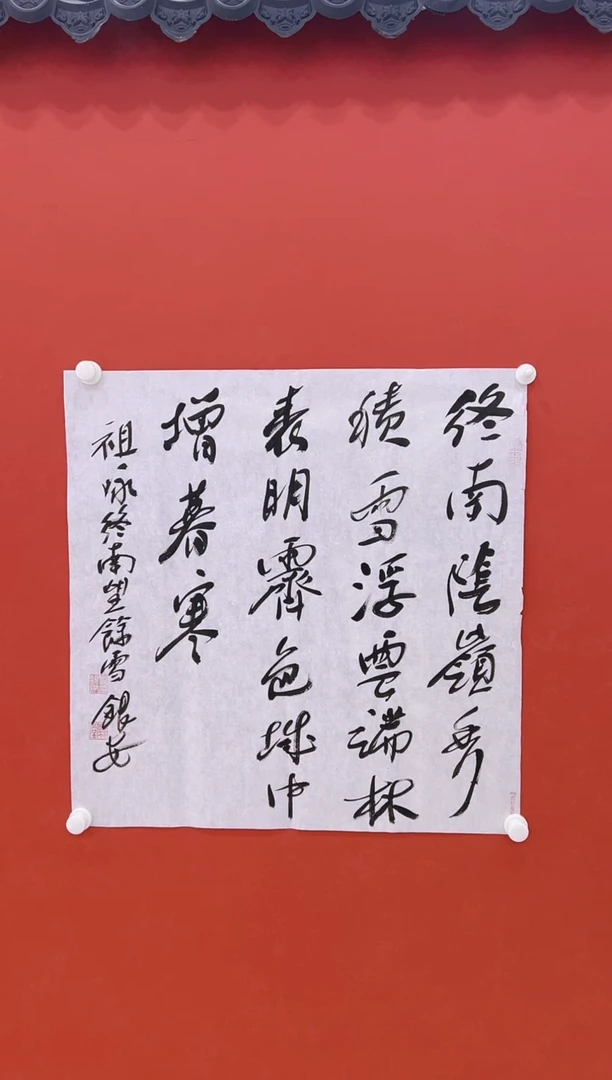 終南陰嶺秀
積雪浮雲端林
表明霽色城中
增暮寒
祖詠終南望餘雪 銀安